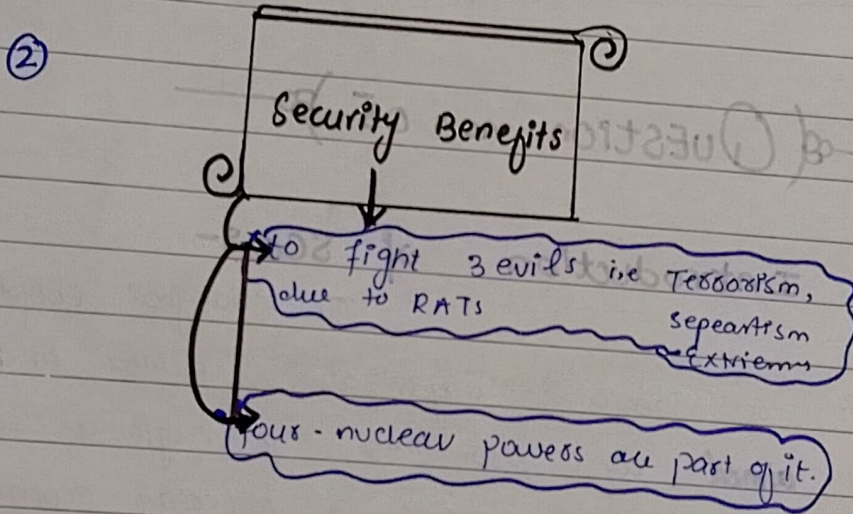 ②
Security Benefits
to fight 3 evils i.e Terrorism,
due to RATs sepeartism
Extriems
four - nuclear powers are part of it.